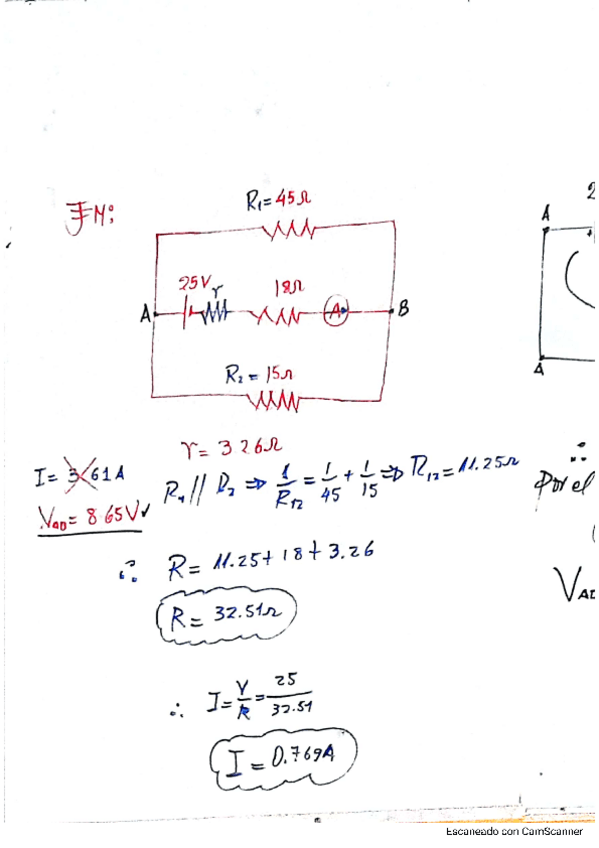 R₁=45Ω
FM:
25V
r
18Ω
A
A
B
R₂ = 15Ω
r = 3 26Ω
I = 3 61A
R₁ // R₂ ⇒ 1/R₁₂ = 1/45 + 1/15 ⇒ R₁₂ = 11.25Ω
V_AD = 8 65V ✓
∴ R = 11.25 + 18 + 3.26
R = 32.51Ω
∴ I = V/R = 25/32.51
I = 0.769A
2
A
A
∴
Por el
V_AD
Escaneado con CamScanner